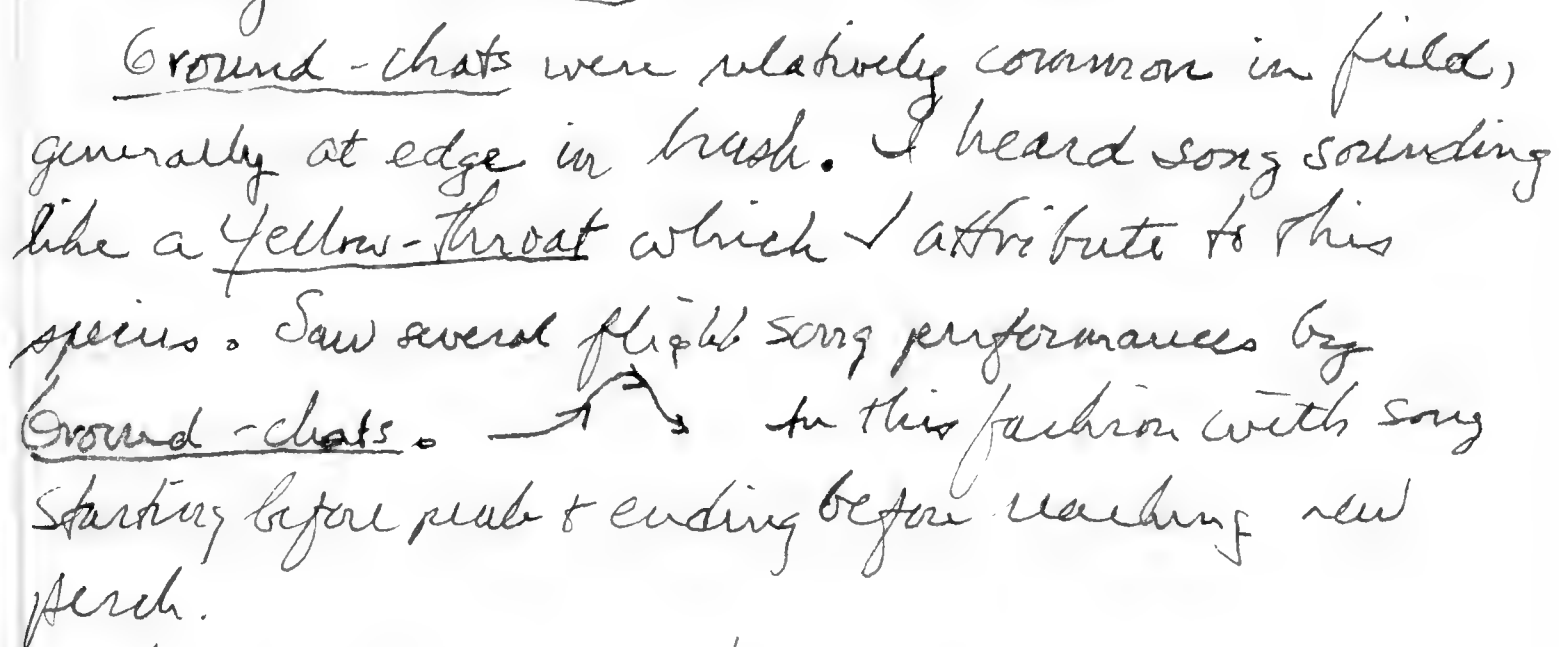 Ground-chats were relatively common in field,
generally at edge in brush. I heard song sounding
like a Yellow-throat which I attribute to this
species. Saw several flight song performances by
Ground-chats. In this fashion with song
starting before peak & ending before reaching new
perch.